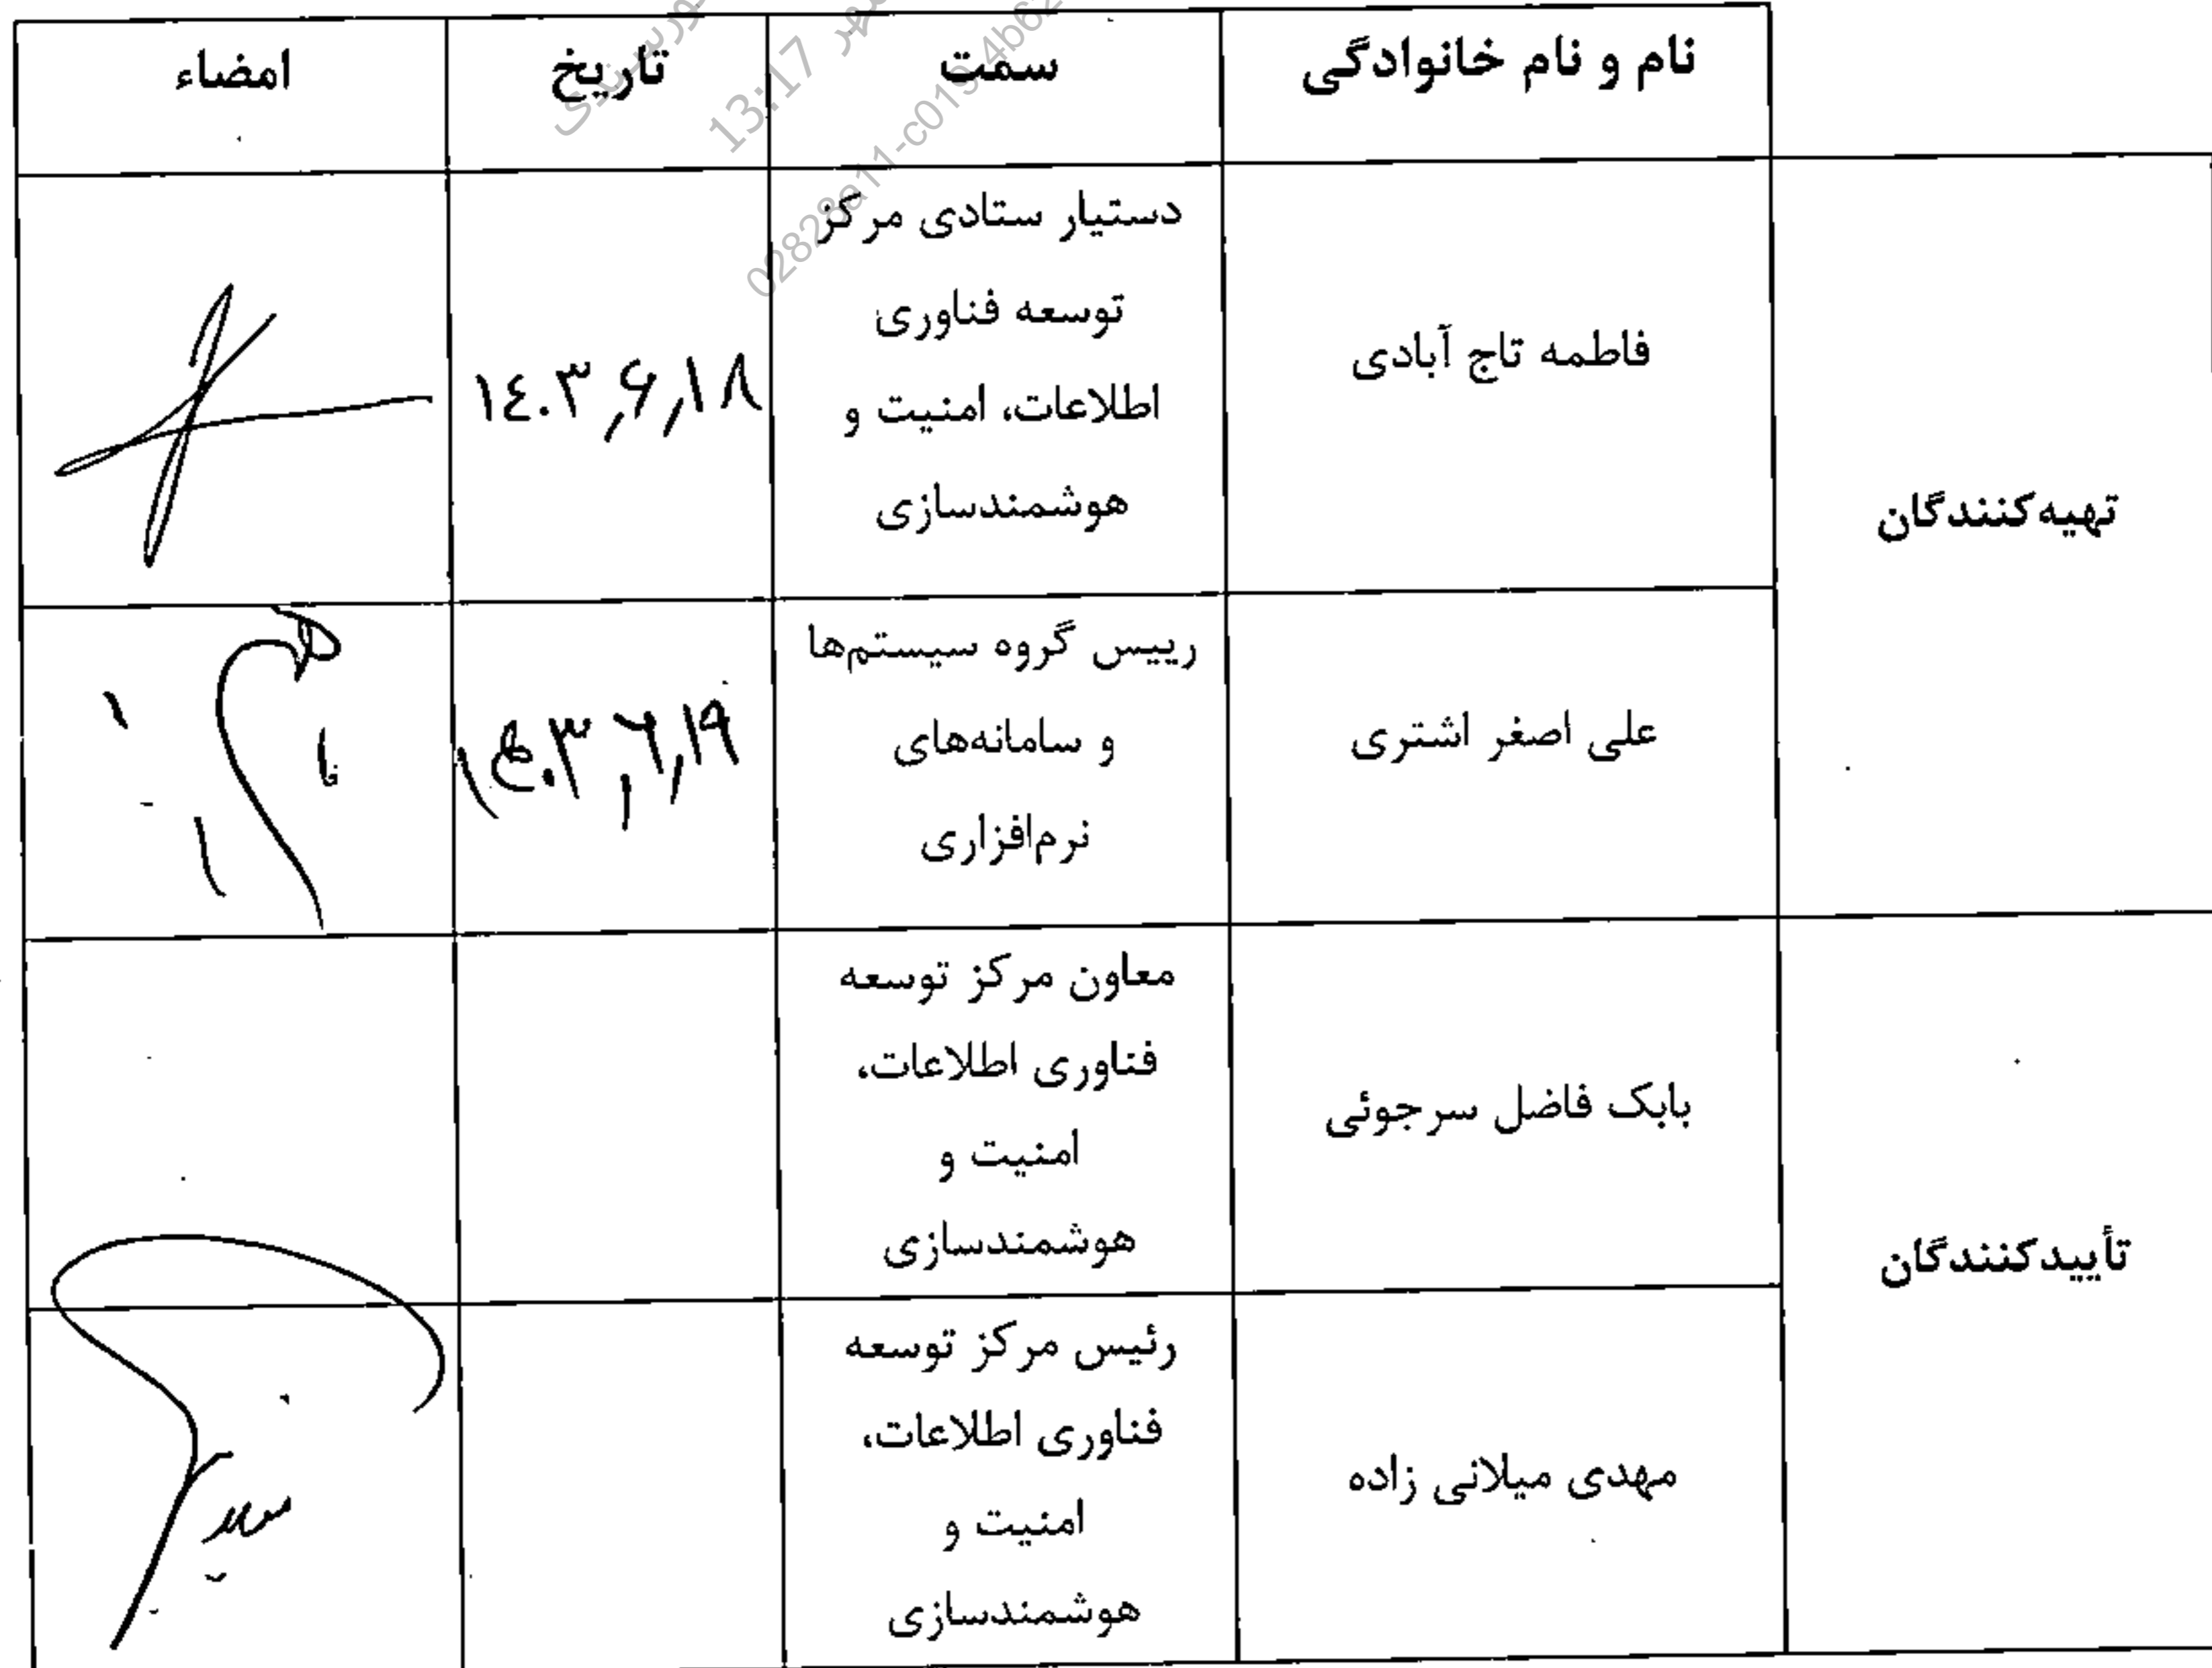 نام و نام خانوادگی سمت تاریخ امضاء
تهیه‌کنندگان
فاطمه تاج آبادی
دستیار ستادی مرکز
توسعه فناوری
اطلاعات، امنیت و
هوشمندسازی
۱۴۰۳,۶,۱۸
علی اصغر اشتری
رییس گروه سیستم‌ها
و سامانه‌های
نرم‌افزاری
۱۴۰۳,۶,۱۹
تأییدکنندگان
بابک فاضل سرجوئی
معاون مرکز توسعه
فناوری اطلاعات،
امنیت و
هوشمندسازی
مهدی میلانی زاده
رئیس مرکز توسعه
فناوری اطلاعات،
امنیت و
هوشمندسازی
13:17